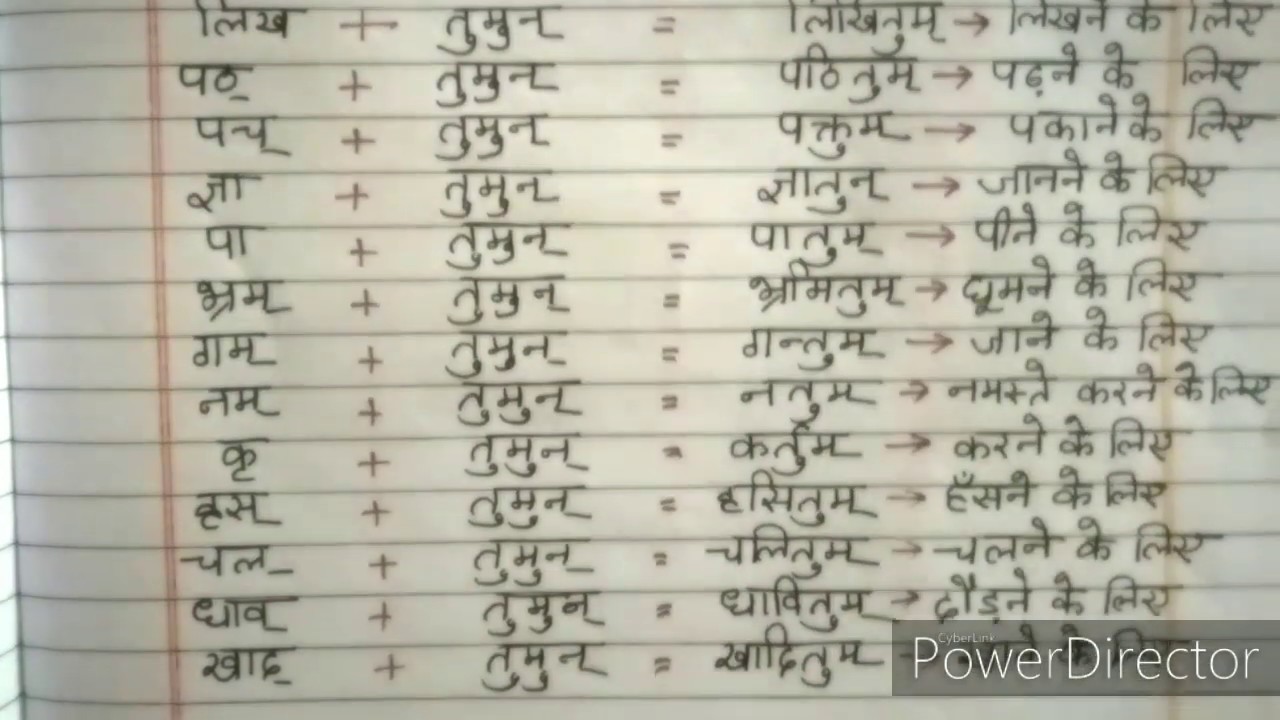 लिख + तुमुन् = लिखितुम् → लिखने के लिए
पठ् + तुमुन् = पठितुम् → पढ़ने के लिए
पच् + तुमुन् = पक्तुम् → पकाने के लिए
ज्ञा + तुमुन् = ज्ञातुन् → जानने के लिए
पा + तुमुन् = पातुम् → पीने के लिए
भ्रम् + तुमुन् = भ्रमितुम् → घूमने के लिए
गम् + तुमुन् = गन्तुम् → जाने के लिए
नम् + तुमुन् = नतुम् → नमस्ते करने के लिए
कृ + तुमुन् = कर्तुम् → करने के लिए
हस् + तुमुन् = हसितुम् → हँसने के लिए
चल् + तुमुन् = चलितुम् → चलने के लिए
धाव् + तुमुन् = धावितुम् → दौड़ने के लिए
खाद् + तुमुन् = खादितुम् के लिए
CyberLink
PowerDirector